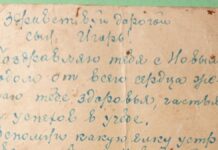 Здравствуй дорогой
сын Игорь!
Поздравляю тебя с Новым
годом от всего сердца же
лаю тебе здоровья, счастья
и успехов в учебе.
Вспомни какую елку устр